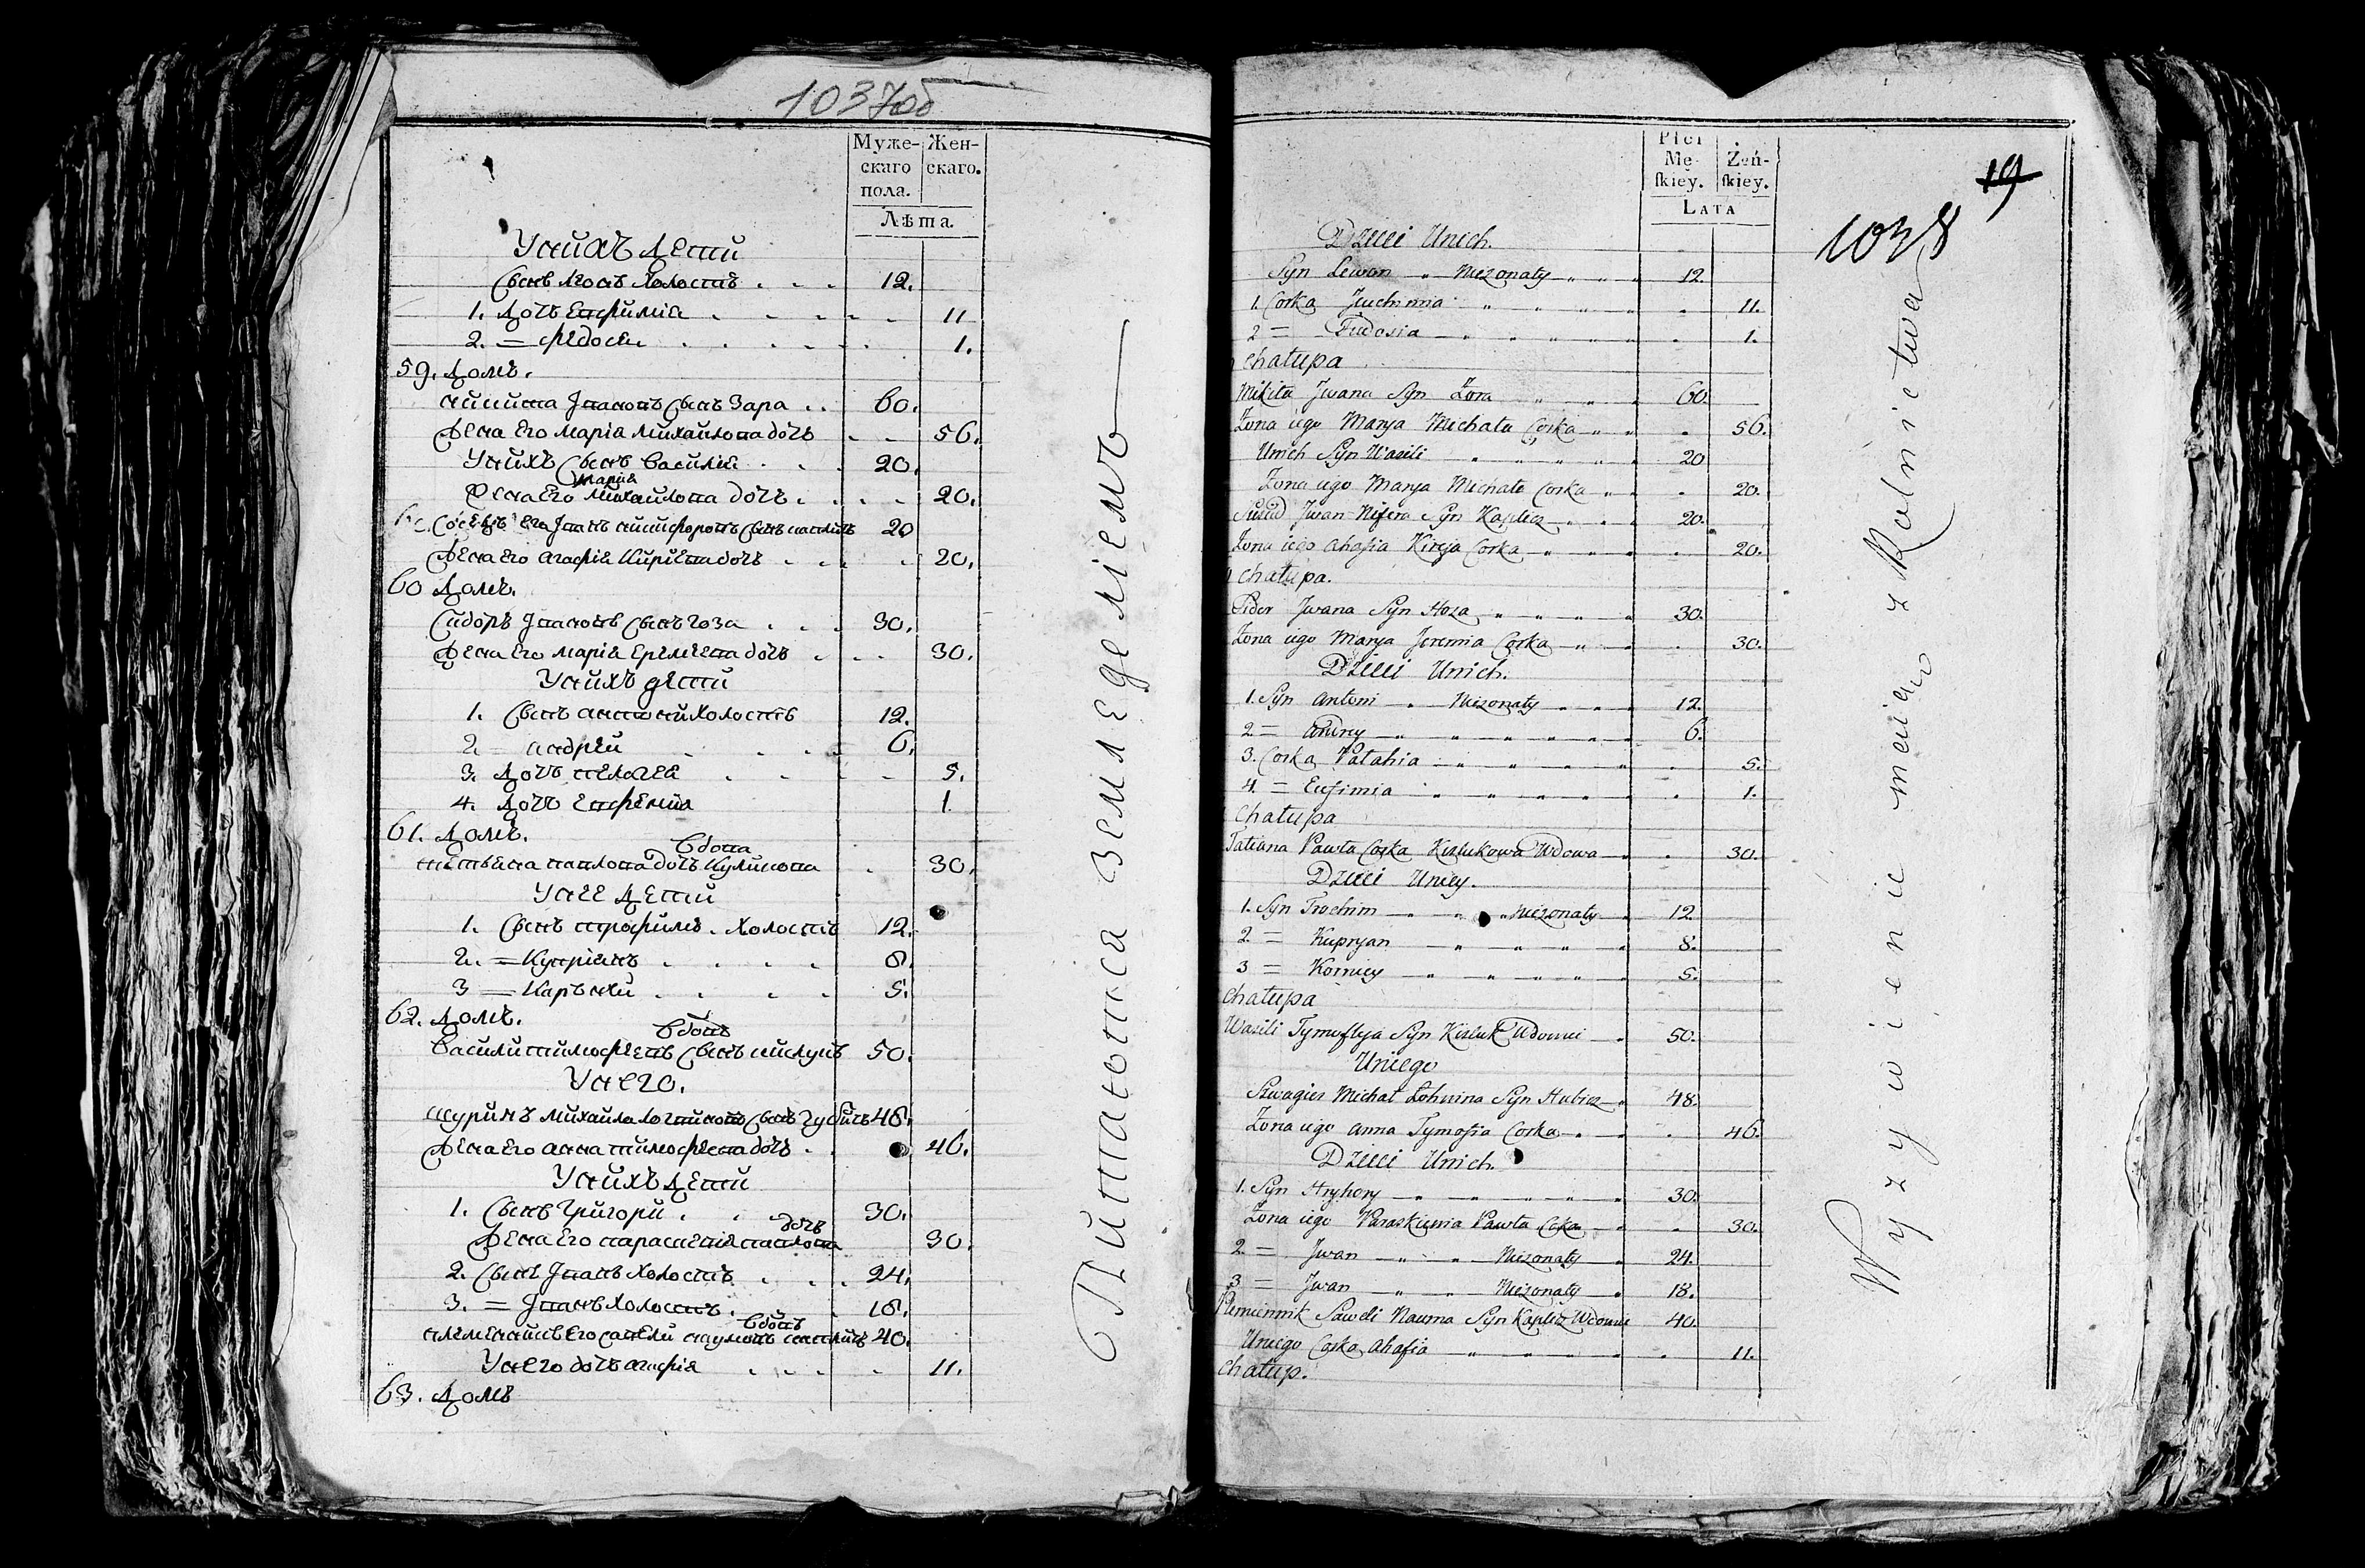 1037об
Муже-
скаго
пола.
Жен-
скаго.
Лѣта.
Унихъ дети
Сынъ Леонъ Холостъ 12.
1. Дочь Евфимiа 11
2. = Федосья 1.
59. Домъ.
Никита Ивановъ Сынъ Зара 60.
Жена Его Марiа Михайлова дочь 56.
Унихъ Сынъ Василiй 20.
Марiя
Жена Его Михайлова дочь 20.
Соседъ Его Иванъ Никифоровъ Сынъ Капличъ 20
Жена Его Агафiя Кирѣева дочь 20.
60 Домъ.
Сидоръ Ивановъ Сынъ Гоза 30.
Жена Его Марiя Еремѣева дочь 30.
Унихъ дети
1. Сынъ Антони Холостъ 12.
2 = Андрѣй 6.
3. Дочь Пелагея 5.
4. Дочь Евфемiа 1
61. Домъ.
Вдова
Татьяна Павлова дочь 30.
Унее Дети
1. Сынъ Трофимъ. Холостъ 12.
2. = Купрiянъ 8.
3 = Карънѣи 5.
62. Домъ.
Вдовъ
Василий Тимофѣевъ Сынъ Кислукъ 50.
Унего.
Шуринъ Михайла Логвиновъ Сынъ Губичъ 48.
Жена Его Анна Тимофѣева дочь 46.
Унихъ Дети
1. Сынъ Григори 30.
дочь
Жена Его Параскевiя Павлова 30.
2. Сынъ Иванъ Холостъ 24.
3. = Иванъ Холостъ 18.
Вдовъ
Племенникъ Его Савели Наумовъ Капличъ 40.
Унего дочь Агафiя 11.
63. Домъ
Питается Земледелiемъ
Płci
Mę-
skiey.
Żeń-
skiey.
LATA
19
1038
Dzieci Unich
Syn Lewon Niezonaty 12.
1. Corka Juchimia 11.
2 = Fudosia 1.
chatupa
Mikita Jwana Syn Zora 60.
Zona iego Marya Michata Corka 56.
Unich Syn Wasili 20
Zona iego Marya Michata Corka 20.
Susiad Jwan Nifera Syn Kaplicz 20.
Zona iego Ahafia Kireja Corka 20.
chatupa.
Sidor Jwana Syn Hoza 30.
Zona iego Marya Jeremia Corka 30.
Dzieci Unich.
1. Syn Antoni Niezonaty 12.
2 = Andrey 6.
3. Corka Patahia 5.
4. = Eufimia 1.
chatupa
Tatiana Pawta Corka Kislukowa Wdowa 30.
Dzieci Uniey.
1. Syn Trochim Niezonaty 12.
2. = Kupryan 8.
3 = Korniey 5.
chatupa
Wasili Tymofieja Syn Kisluk Wdowiec 50.
Uniego
Szwagier Michat Lohwina Syn Hubicz 48.
Zona iego Anna Tymofia Corka 46.
Dzieci Unich.
1. Syn Hryhory 30.
Zona iego Paraskiewia Pawta Corka 30.
2. = Jwan Niezonaty 24.
3 = Jwan Niezonaty 18.
Plemiennik Saweli Nauma Syn Kaplicz Wdowiec 40.
Uniego Corka Ahafia 11.
chatup.
Wyzywienie maią z Rolnictwa